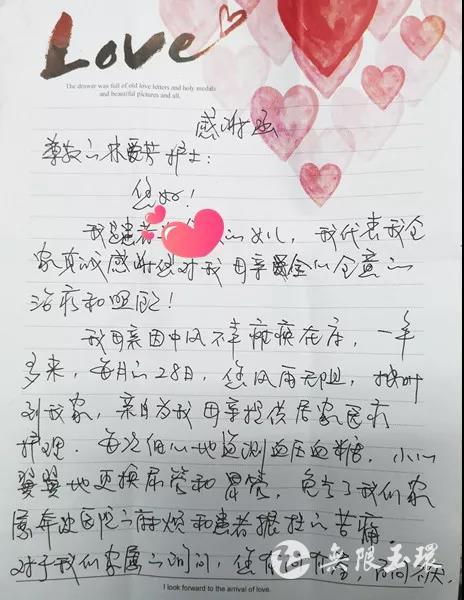 Love
The drawer was full of old love letters and holy medals
and beautiful pictures and all.
感谢函
尊敬的林爱芳护士：
您好！
我是患者的女儿，我代表我全
家真诚感谢您对我母亲全心全意的
治疗和照顾！
我母亲因中风不幸瘫痪在床，一年
多来，每月的28日，您风雨无阻，按时
到我家，亲自为我母亲提供居家医疗
护理。每次细心地监测血压血糖，小心
翼翼地更换尿管和胃管，免去了我们家
属奔波医院的麻烦和患者搬拉的苦痛。
对于我们家属的询问，您有问有答，百问不厌，
無限玉環
I look forward to the arrival of love.